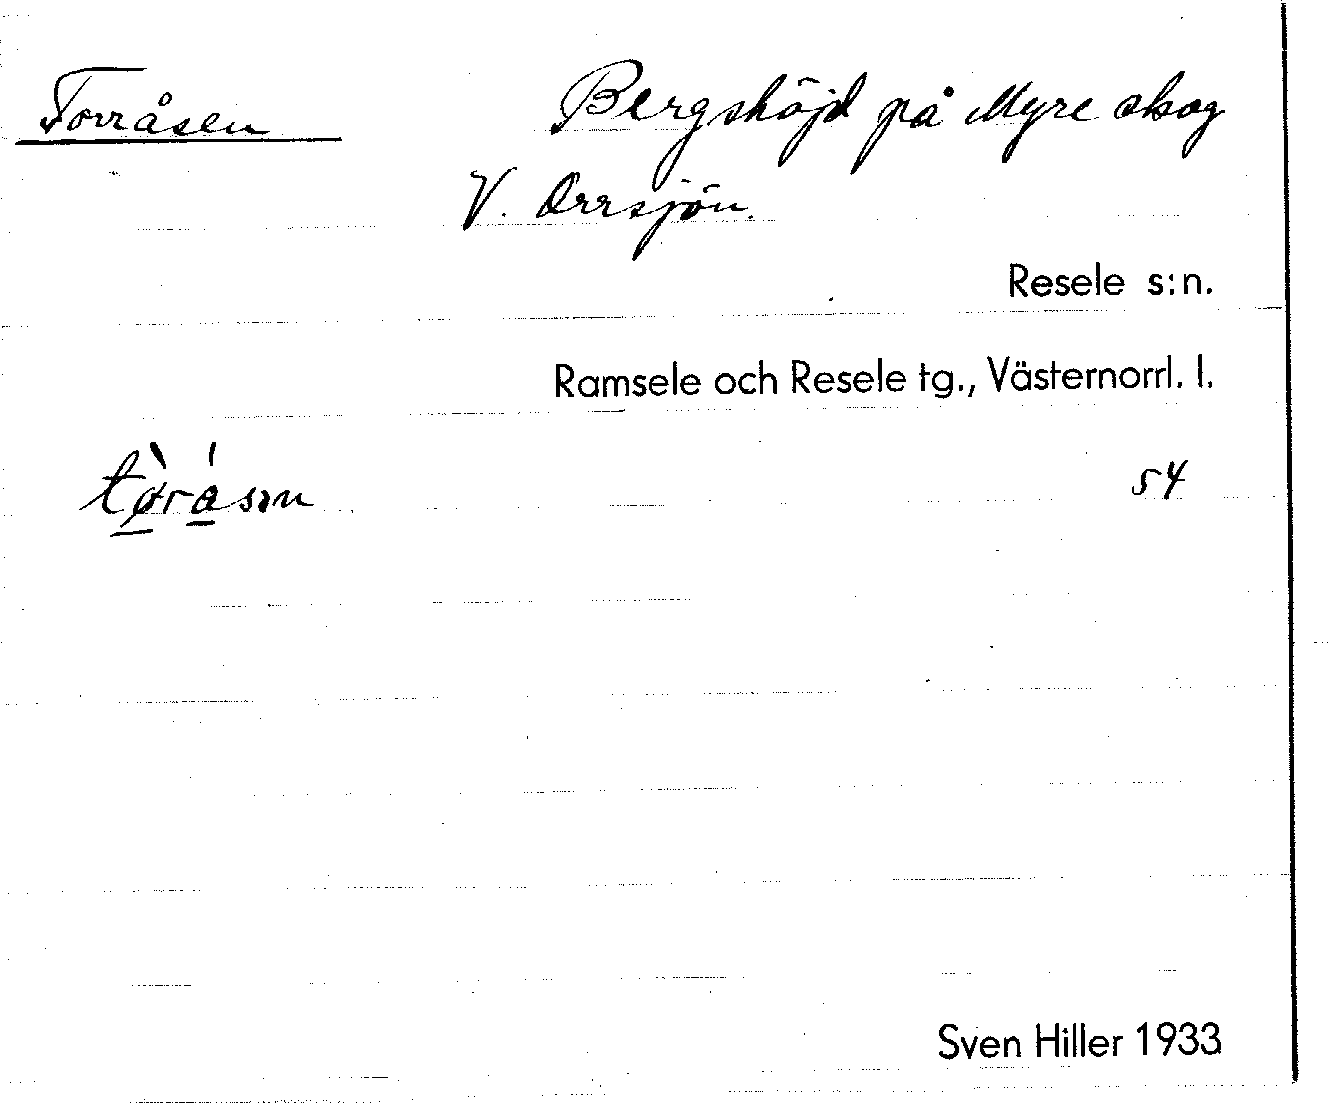 Torråsen
Bergshöjd på Myre skog
V. Orrsjön.
Resele s:n.
Ramsele och Resele tg., Västernorrl. l.
54
Sven Hiller 1933